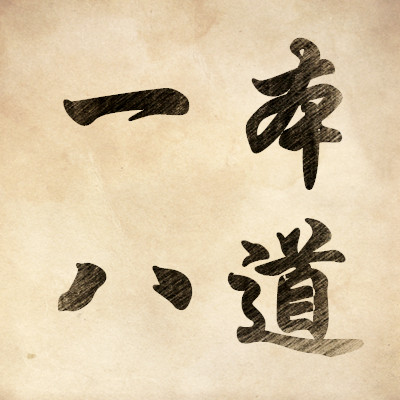 本道
一八